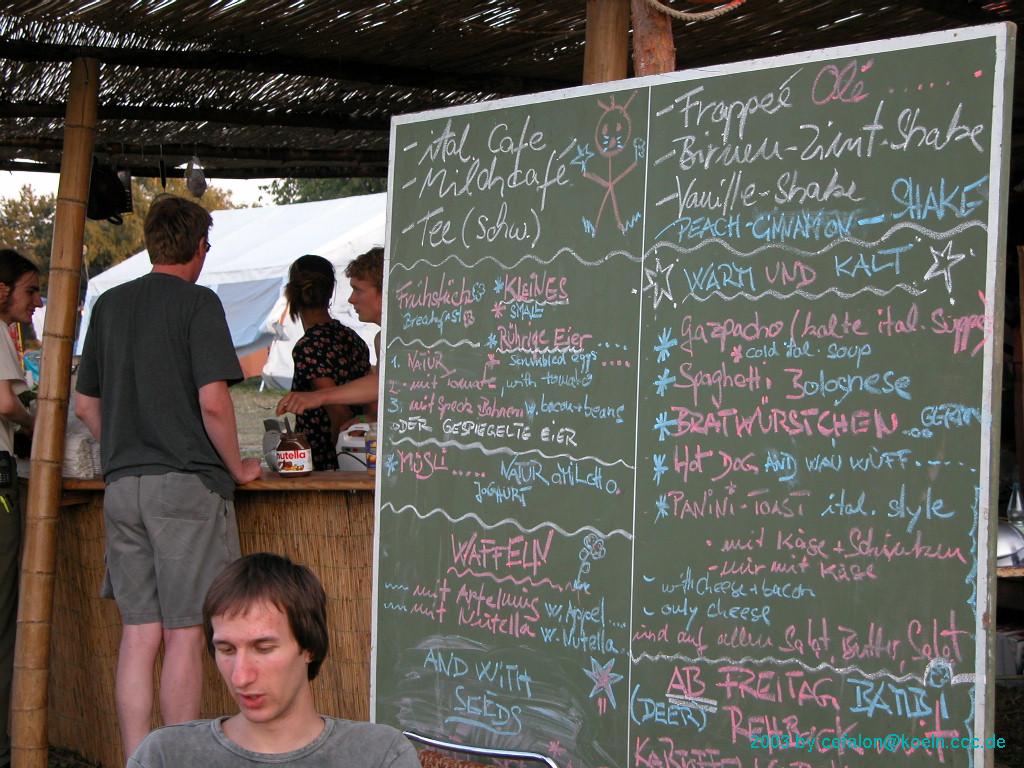 - ital Cafe
- Milchcafé
- Tee (Schw.)
Frühstück
Breakfast
* KLEINES
* SMALL
* Rührige Eier ....
* scrambled eggs ....
1. NATUR
2. mit tomate with tomato
3. mit Speck Bohnen w. bacon+beans
ODER GESPIEGELTE EIER
* MÜSLI ..... NATUR
JOGHURT
WAFFELN
mit Apfelmus w. Appel ....
mit Nutella w. Nutella.
AND WITH
SEEDS
- Frappeé Olé ......
- Birnen-Zimt-Shake
- Vanille-Shake
- PEACH-CINNAMON- SHAKE
WARM UND KALT
* Gazpacho (kalte ital. Suppe)
* cold ital. soup
* Spaghetti Bolognese
* BRATWÜRSTCHEN
* HOT DOG AND WAU WUFF.....
* PANINI-TOAST ital. style
- mit Käse + Schinken
- nur mit Käse
- with cheese + bacon
- only cheese
und auf allem Salat, Butter, Salat
AB FREITAG BAMBI
(DEER)
nutella
2003 by cefalon@koeln.ccc.de